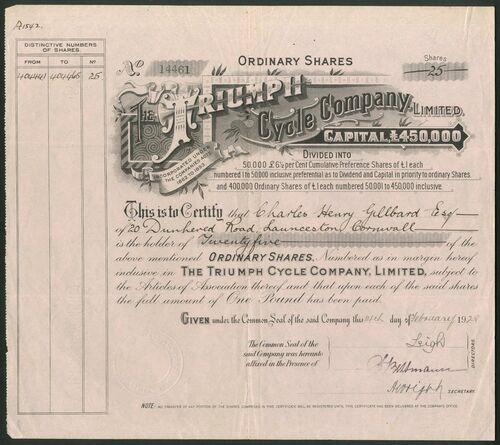 A1542.
DISTINCTIVE NUMBERS OF SHARES.
FROM TO No
404441 404465 25
ORDINARY SHARES
No 14461
Shares
25
THE TRIUMPH
Cycle Company, LIMITED.
INCORPORATED UNDER THE COMPANIES ACTS 1862 TO 1893
CAPITAL, £450,000
DIVIDED INTO
50,000 £6½ per Cent Cumulative Preference Shares of £1 each
numbered 1 to 50000 inclusive, preferential as to Dividend and Capital in priority to ordinary Shares.
and 400,000 Ordinary Shares of £1 each numbered 50001 to 450000 inclusive.
This is to Certify that Charles Henry Gillbard Esq
of 20 Dunheved Road, Launceston Cornwall
is the holder of Twentyfive of the
above mentioned ORDINARY SHARES. Numbered as in margin hereof
inclusive in THE TRIUMPH CYCLE COMPANY, LIMITED, subject to
the Articles of Association thereof and that upon each of the said shares
the full amount of One Pound has been paid.
GIVEN under the Common Seal of the said Company this day of February 1928
The Common Seal of the
said Company was hereunto
affixed in the Presence of
Leigh
DIRECTORS.
SECRETARY.
NOTE:- NO TRANSFER OF ANY PORTION OF THE SHARES COMPRISED IN THIS CERTIFICATE WILL BE REGISTERED UNTIL THIS CERTIFICATE HAS BEEN DELIVERED AT THE COMPANY'S OFFICE.